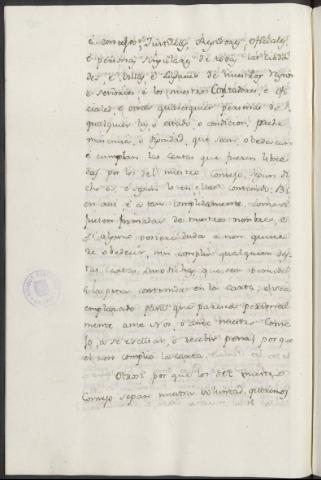 é concejos, Justicias, Regidores, oficiales,
é personas singulares de todas las cibda
des é villas é lugares de nuestros Regnos
é señorios, é los nuestros Contadores, é ofi
ciales é otras qualesquier personas de
qualquier ley, ó estado, ó condicion, prehe
minencia, ó dignidad, que sean, obedezcan
é cumplan las cartas que fueren libra
das por los del nuestro Consejo, segun di
cho es é segun lo en ellas contenido. Bi
en asi é á tan complidamente, como si
fuesen firmadas de nuestro nombre é
si alguno posiere dubda é non quisie
re obedecer, nin complir qualesquier des
tas cartas,
la pena contenida en la carta, é sea
emplazado para que parezca personal
mente ante Nos, ó ante nuestro Conse
jo, a se escusar, ó recebir pena, porque
él non complió la carta.
Otrosi por que los del nuestro
Consejo sepan nuestra voluntad, queremos